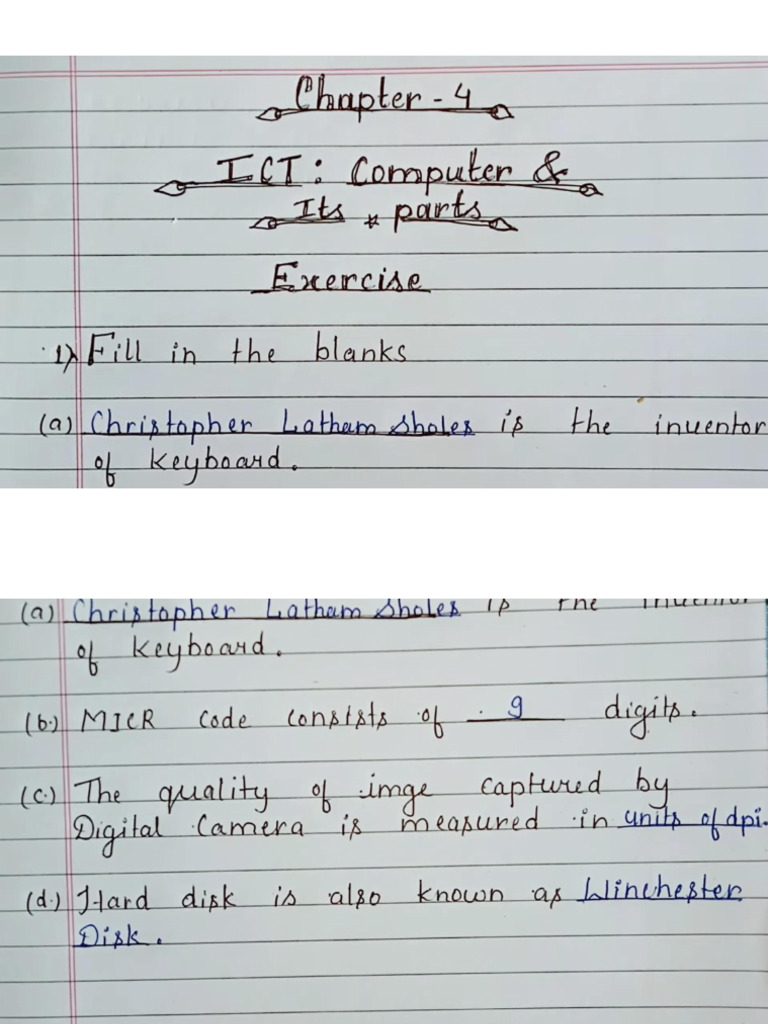 Chapter - 4
ICT: Computer &
Its * parts
Exercise
1) Fill in the blanks
(a) Christopher Latham Sholes is the inventor
of keyboard.
(a) Christopher Latham Sholes is the inventor
of keyboard.
(b.) MICR code consists of 9 digits.
(c.) The quality of imge captured by
Digital Camera is measured in units of dpi.
(d.) Hard disk is also known as Winchester
Disk.